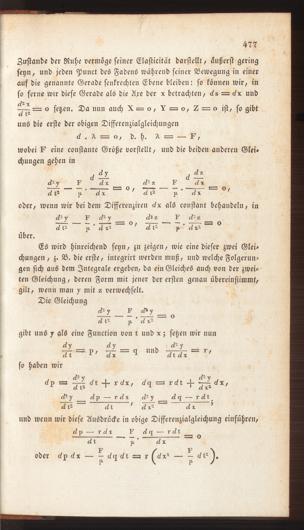 477
Zustande der Ruhe vermöge seiner Elasticität darstellt, äußerst gering
seyn, und jeden Punct des Fadens während seiner Bewegung in einer
auf die genannte Gerade senkrechten Ebene bleiben: so können wir, in
so ferne wir diese Gerade als die Axe der x betrachten, ds = dx und
d²x/dt² = 0 setzen. Da nun auch X = 0, Y = 0, Z = 0 ist, so gibt
uns die erste der obigen Differenzialgleichungen
d . λ = 0, d. h. λ = — F,
wobei F eine constante Größe vorstellt, und die beiden anderen Glei-
chungen gehen in
d²y/dt² — F/μ . d (dy/dx)/dx = 0, d²z/dt² — F/μ . d (dz/dx)/dx = 0,
oder, wenn wir bei dem Differenziren dx als constant behandeln, in
d²y/dt² — F/μ . d²y/dx² = 0, d²z/dt² — F/μ . d²z/dx² = 0
über.
Es wird hinreichend seyn, zu zeigen, wie eine dieser zwei Glei-
chungen, z. B. die erste, integrirt werden muß, und welche Folgerun-
gen sich aus dem Integrale ergeben, da ein Gleiches auch von der zwei-
ten Gleichung, deren Form mit jener der ersten genau übereinstimmt,
gilt, wenn man y mit z verwechselt.
Die Gleichung
d²y/dt² — F/μ . d²y/dx² = 0
gibt uns y als eine Function von t und x; setzen wir nun
dy/dt = p, dy/dx = q und d²y/dt dx = r,
so haben wir
dp = d²y/dt² dt + r dx, dq = r dt + d²y/dx² dx,
d²y/dt² = dp — r dx/dt, d²y/dx² = dq — r dt/dx;
und wenn wir diese Ausdrücke in obige Differenzialgleichung einführen,
dp — r dx/dt — F/μ . dq — r dt/dx = 0
oder dp dx — F/μ dq dt = r (dx² — F/μ dt²).